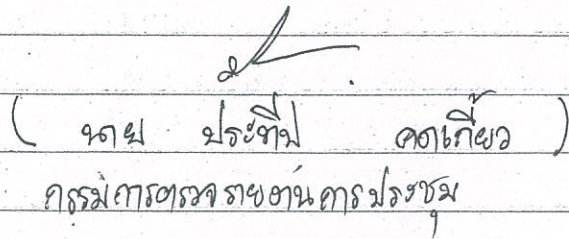 ( นาย ประทีป คดเกี้ยว )
กรรมการตรวจรายงานการประชุม